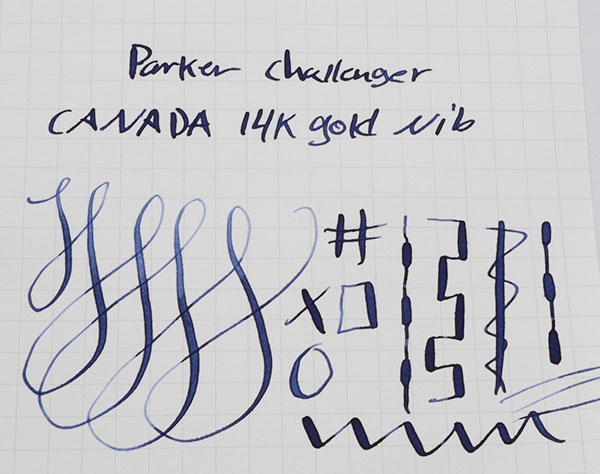 Parker challenger
CANADA 14K gold Nib